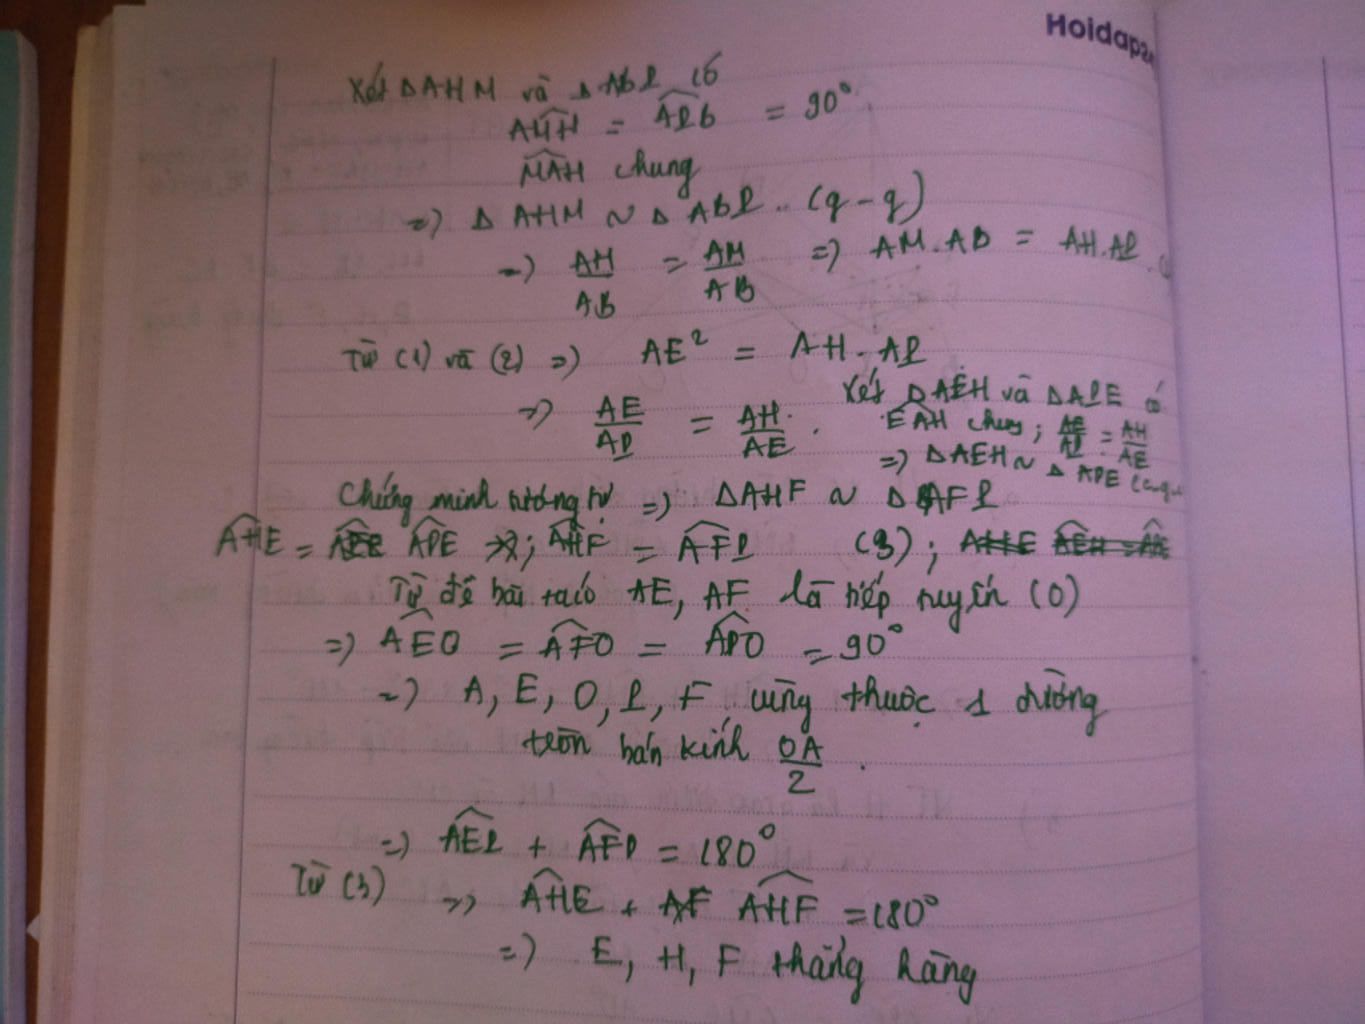 Hoidap247
Xét ΔAHM và ΔABD có
AMH = ADB = 90°
MAH chung
=> ΔAHM ~ ΔABD (g-g)
=> AH/AB = AM/AD => AM.AB = AH.AD
Từ (1) và (2) => AE² = AH.AD
=> AE/AD = AH/AE.
Xét ΔAEH và ΔADE có
EAH chung; AE/AD = AH/AE
=> ΔAEH ~ ΔADE
Chứng minh tương tự => ΔAHF ~ ΔAFD
AHE = ADE ; AHF = AFD (3);
Từ đề bài ta có AE, AF là tiếp tuyến (O)
=> AEO = AFO = ADO = 90°
=> A, E, O, D, F cùng thuộc 1 đường
tròn bán kính OA/2.
=> AED + AFD = 180°
Từ (3) => AHE + AHF = 180°
=> E, H, F thẳng hàng